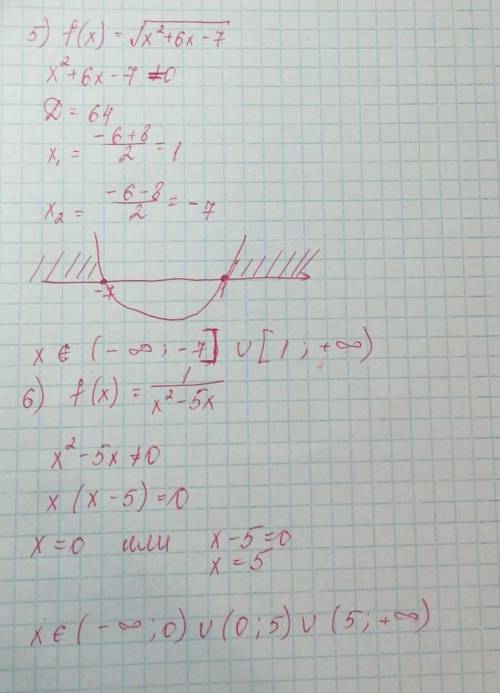 5) f(x) = √(x²+6x-7)
x²+6x-7 ≠0
D = 64
x₁ = (-6+8)/2 = 1
x₂ = (-6-8)/2 = -7
-7 1
x ∈ (-∞; -7] ∪ [1; +∞)
6) f(x) = 1/(x²-5x)
x²-5x ≠0
x(x-5)=0
x=0 или x-5=0
x=5
x∈(-∞;0)∪(0;5)∪(5;+∞)